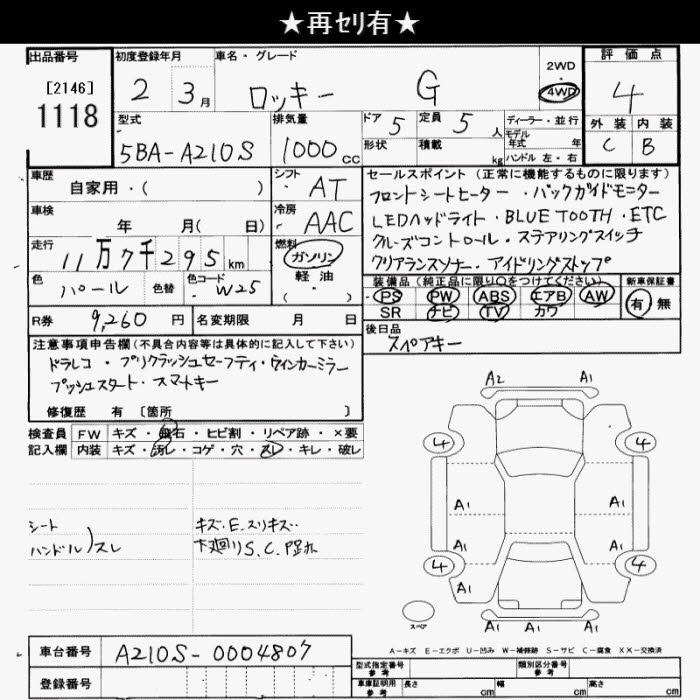 ★再ｾﾘ有★
出品番号
[2146]
1118
初度登録年月
2 3月
車名・グレード
ロッキー G
2WD
・
4WD
評価点
4
外装 内装
C B
型式
5BA-A210S
排気量
1000cc
ドア 5
定員 5人
ディーラー・並行
モデル年式 年
形状
積載 kg
ハンドル 左・右
車歴
自家用・( )
シフト
AT
車検
年 月( 日)
冷房
AAC
走行
11万7千295km
燃料
ガソリン
軽油
( )
色
パール
色替
色コード
W25
セールスポイント (正常に機能するものに限ります)
フロントシートヒーター・バックガイドモニター
LEDヘッドライト・BLUE TOOTH・ETC
クルーズコントロール・ステアリングスイッチ
クリアランスソナー・アイドリングストップ
装備品(純正品に限り○をつけてください)
PS PW ABS エアB AW
SR ナビ TV カワ
新車保証書
有 無
R券 9,260円
名変期限 月 日
後日品
スペアキー
注意事項申告欄(不具合内容等は具体的に記入して下さい)
ドラレコ・プリクラッシュセーフティ・ウィンカーミラー
プッシュスタート・スマートキー
修復歴 有 [箇所 ]
検査員 FW キズ・飛石・ヒビ割・リペア跡・×要
記入欄 内装 キズ・汚レ・コゲ・穴・スレ・キレ・破レ
シート
ハンドル )スレ
キズ・E・スリキズ・
下廻りS、C、
A2 A1
4 4
A1 A1
A1 A1
4 4
A1
A1 A1
スペア
A-キズ E-エクボ U-凹み W-補修跡 S-サビ C-腐食 XX-交換済
車台番号 A210S-0004807
登録番号
型式指定番号
参考
類別区分番号
参考
車庫証明用
参考
長さ cm
幅 cm
高さ cm